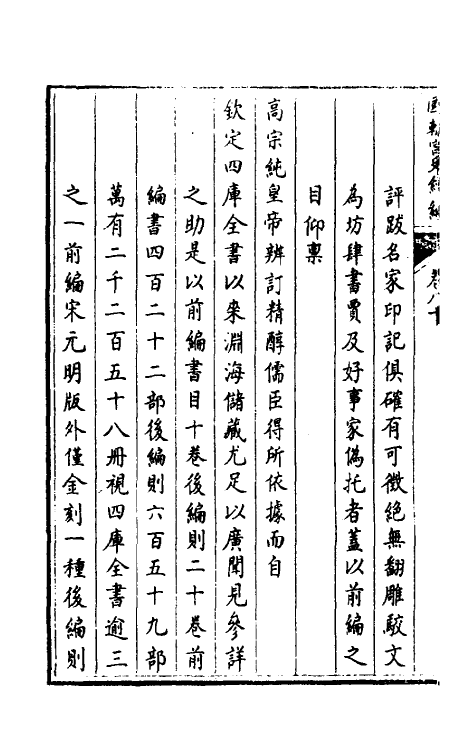 國朝宮史續編 卷八十
評跋名家印記俱確有可徵絕無翻雕駁文
為坊肆書賈及好事家偽托者蓋以前編之
目仰稟
高宗純皇帝辨訂精醇儒臣得所依據而自
欽定四庫全書以來淵海儲藏尤足以廣聞見參詳
之助是以前編書目十卷後編則二十卷前
編書四百二十二部後編則六百五十九部
萬有二千二百五十八冊視四庫全書逾三
之一前編宋元明版外僅金刻一種後編則